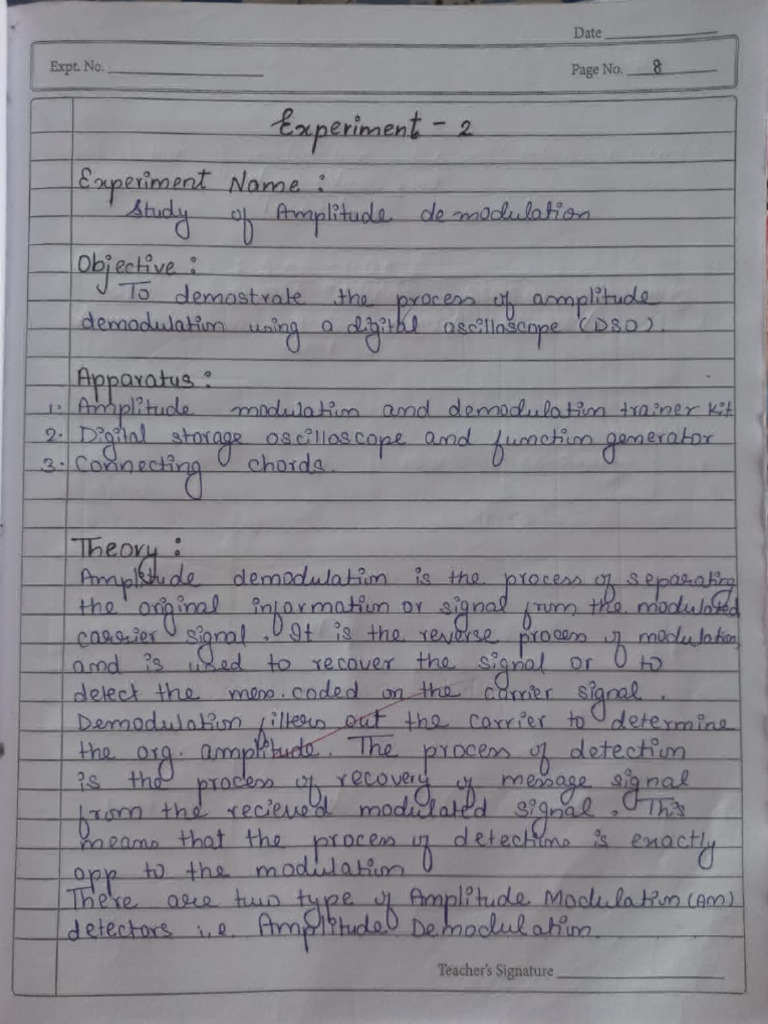 Date
Expt. No.
Page No. 8
Experiment - 2
Experiment Name :
Study of Amplitude demodulation
Objective :
To demostrate the process of amplitude
demodulation using a digital oscilloscope (DSO).
Apparatus :
1. Amplitude modulation and demodulation trainer kit
2. Digital storage oscilloscope and function generator
3. Connecting chords.
Theory :
Amplitude demodulation is the process of separating
the original information or signal from the modulated
carrier signal. It is the reverse process of modulation
and is used to recover the signal or to
detect the mess. coded on the carrier signal.
Demodulation filters out the carrier to determine
the org. amplitude. The process of detection
is the process of recovery of message signal
from the recieved modulated signal. This
means that the process of detections is exactly
opp to the modulation
There are two type of Amplitude Modulation (AM)
detectors i.e. Amplitude Demodulation.
Teacher's Signature